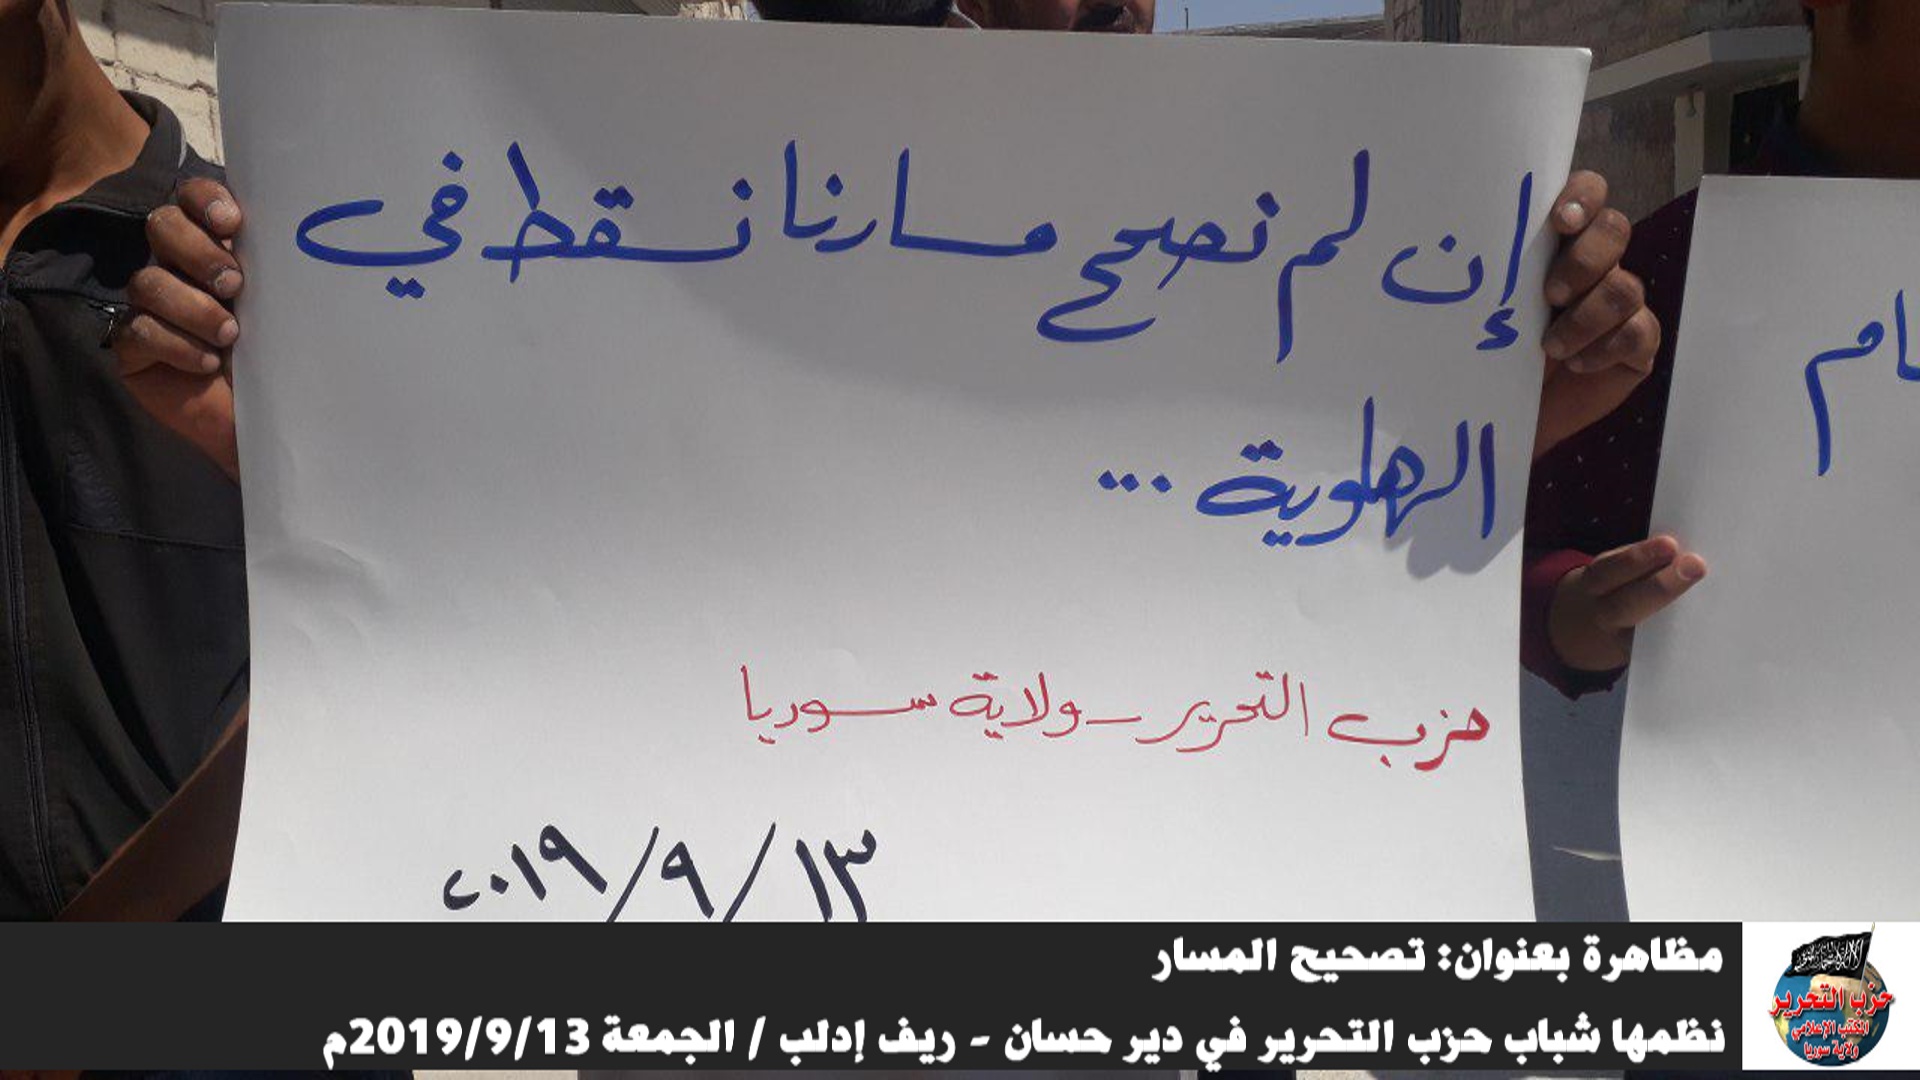 إن لم نصحح مسارنا نسقط في
الهلوية ...
حزب التحرير - ولاية سوريا
٢٠١٩/٩/١٣
ام
مظاهرة بعنوان: تصحيح المسار
نظمها شباب حزب التحرير في دير حسان - ريف إدلب / الجمعة 2019/9/13م
حزب التحرير
المكتب الإعلامي
ولاية سوريا